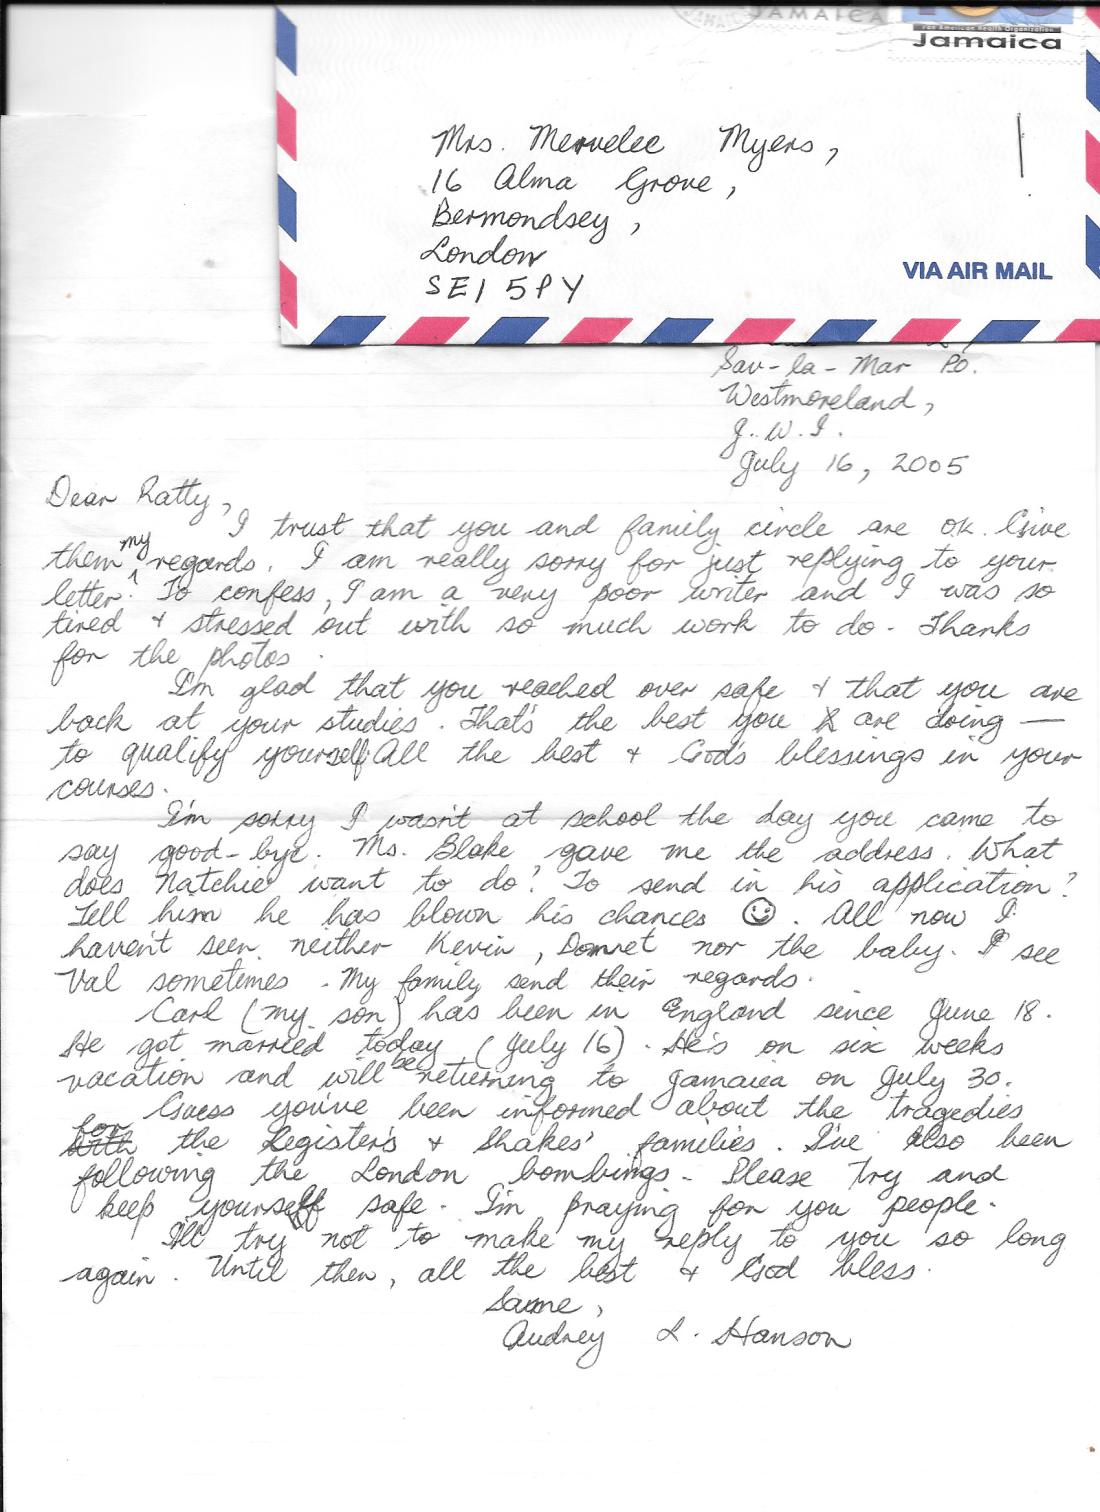 JAMAICA
JAMAICA
Pan American Health Organization
Jamaica
Mrs. Mervelee Myers,
16 Alma Grove,
Bermondsey,
London
SE1 5PY
VIA AIR MAIL
Sav-la-Mar P.O.
Westmoreland,
J.W.I.
July 16, 2005
Dear Ratty,
I trust that you and family circle are ok. Give
them my regards. I am really sorry for just replying to your
letter. To confess, I am a very poor writer and I was so
tired & stressed out with so much work to do. Thanks
for the photos.
I'm glad that you reached over safe & that you are
back at your studies. That's the best you are doing —
to qualify yourself. All the best & God's blessings in your
courses.
I'm sorry I wasn't at school the day you came to
say good-bye. Ms. Blake gave me the address. What
does Natchie want to do? To send in his application?
Tell him he has blown his chances ☺. All now I
haven't seen neither Kevin, Donnet nor the baby. I see
Val sometimes. My family send their regards.
Carl (my son) has been in England since June 18.
He got married today (July 16). He's on six weeks
vacation and will be returning to Jamaica on July 30.
Guess you've been informed about the tragedies
for with the Register's & Shakes' families. I've also been
following the London bombings. Please try and
keep yourself safe. I'm praying for you people.
I'll try not to make my reply to you so long
again. Until then, all the best & God bless.
Same,
Audrey L. Hanson